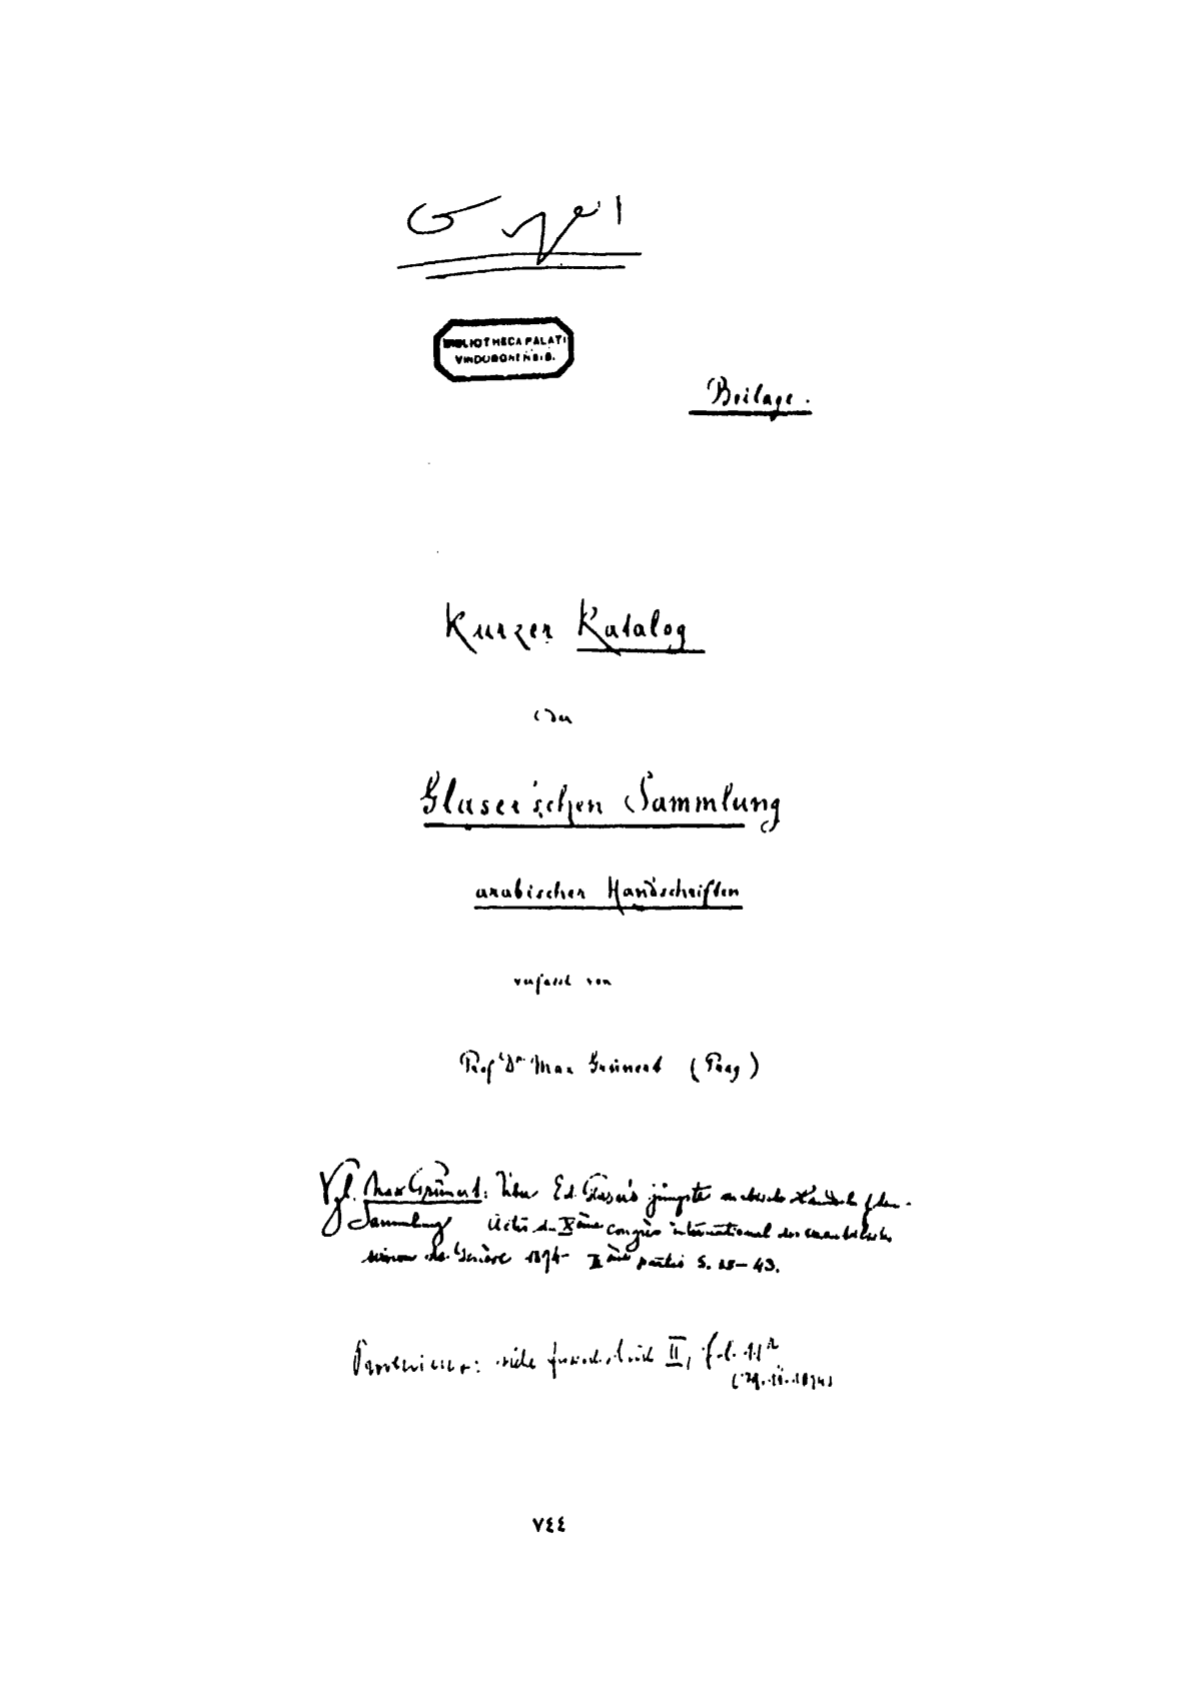 BIBLIOTHECA PALATI
VINDOBONENSIS.
Beilage.
Kurzer Katalog
der
Glaser'schen Sammlung
arabischer Handschriften
verfasst von
Prof Dr Max Grünert (Prag)
Vgl. Max Grünert: Über Ed. Glaser's jüngste arabische
Sammlung Actes du Xème congrès international des orientalistes
Genève 1894 partie S. 43.
Provenienz: II, fol. 11r
٧٤٤